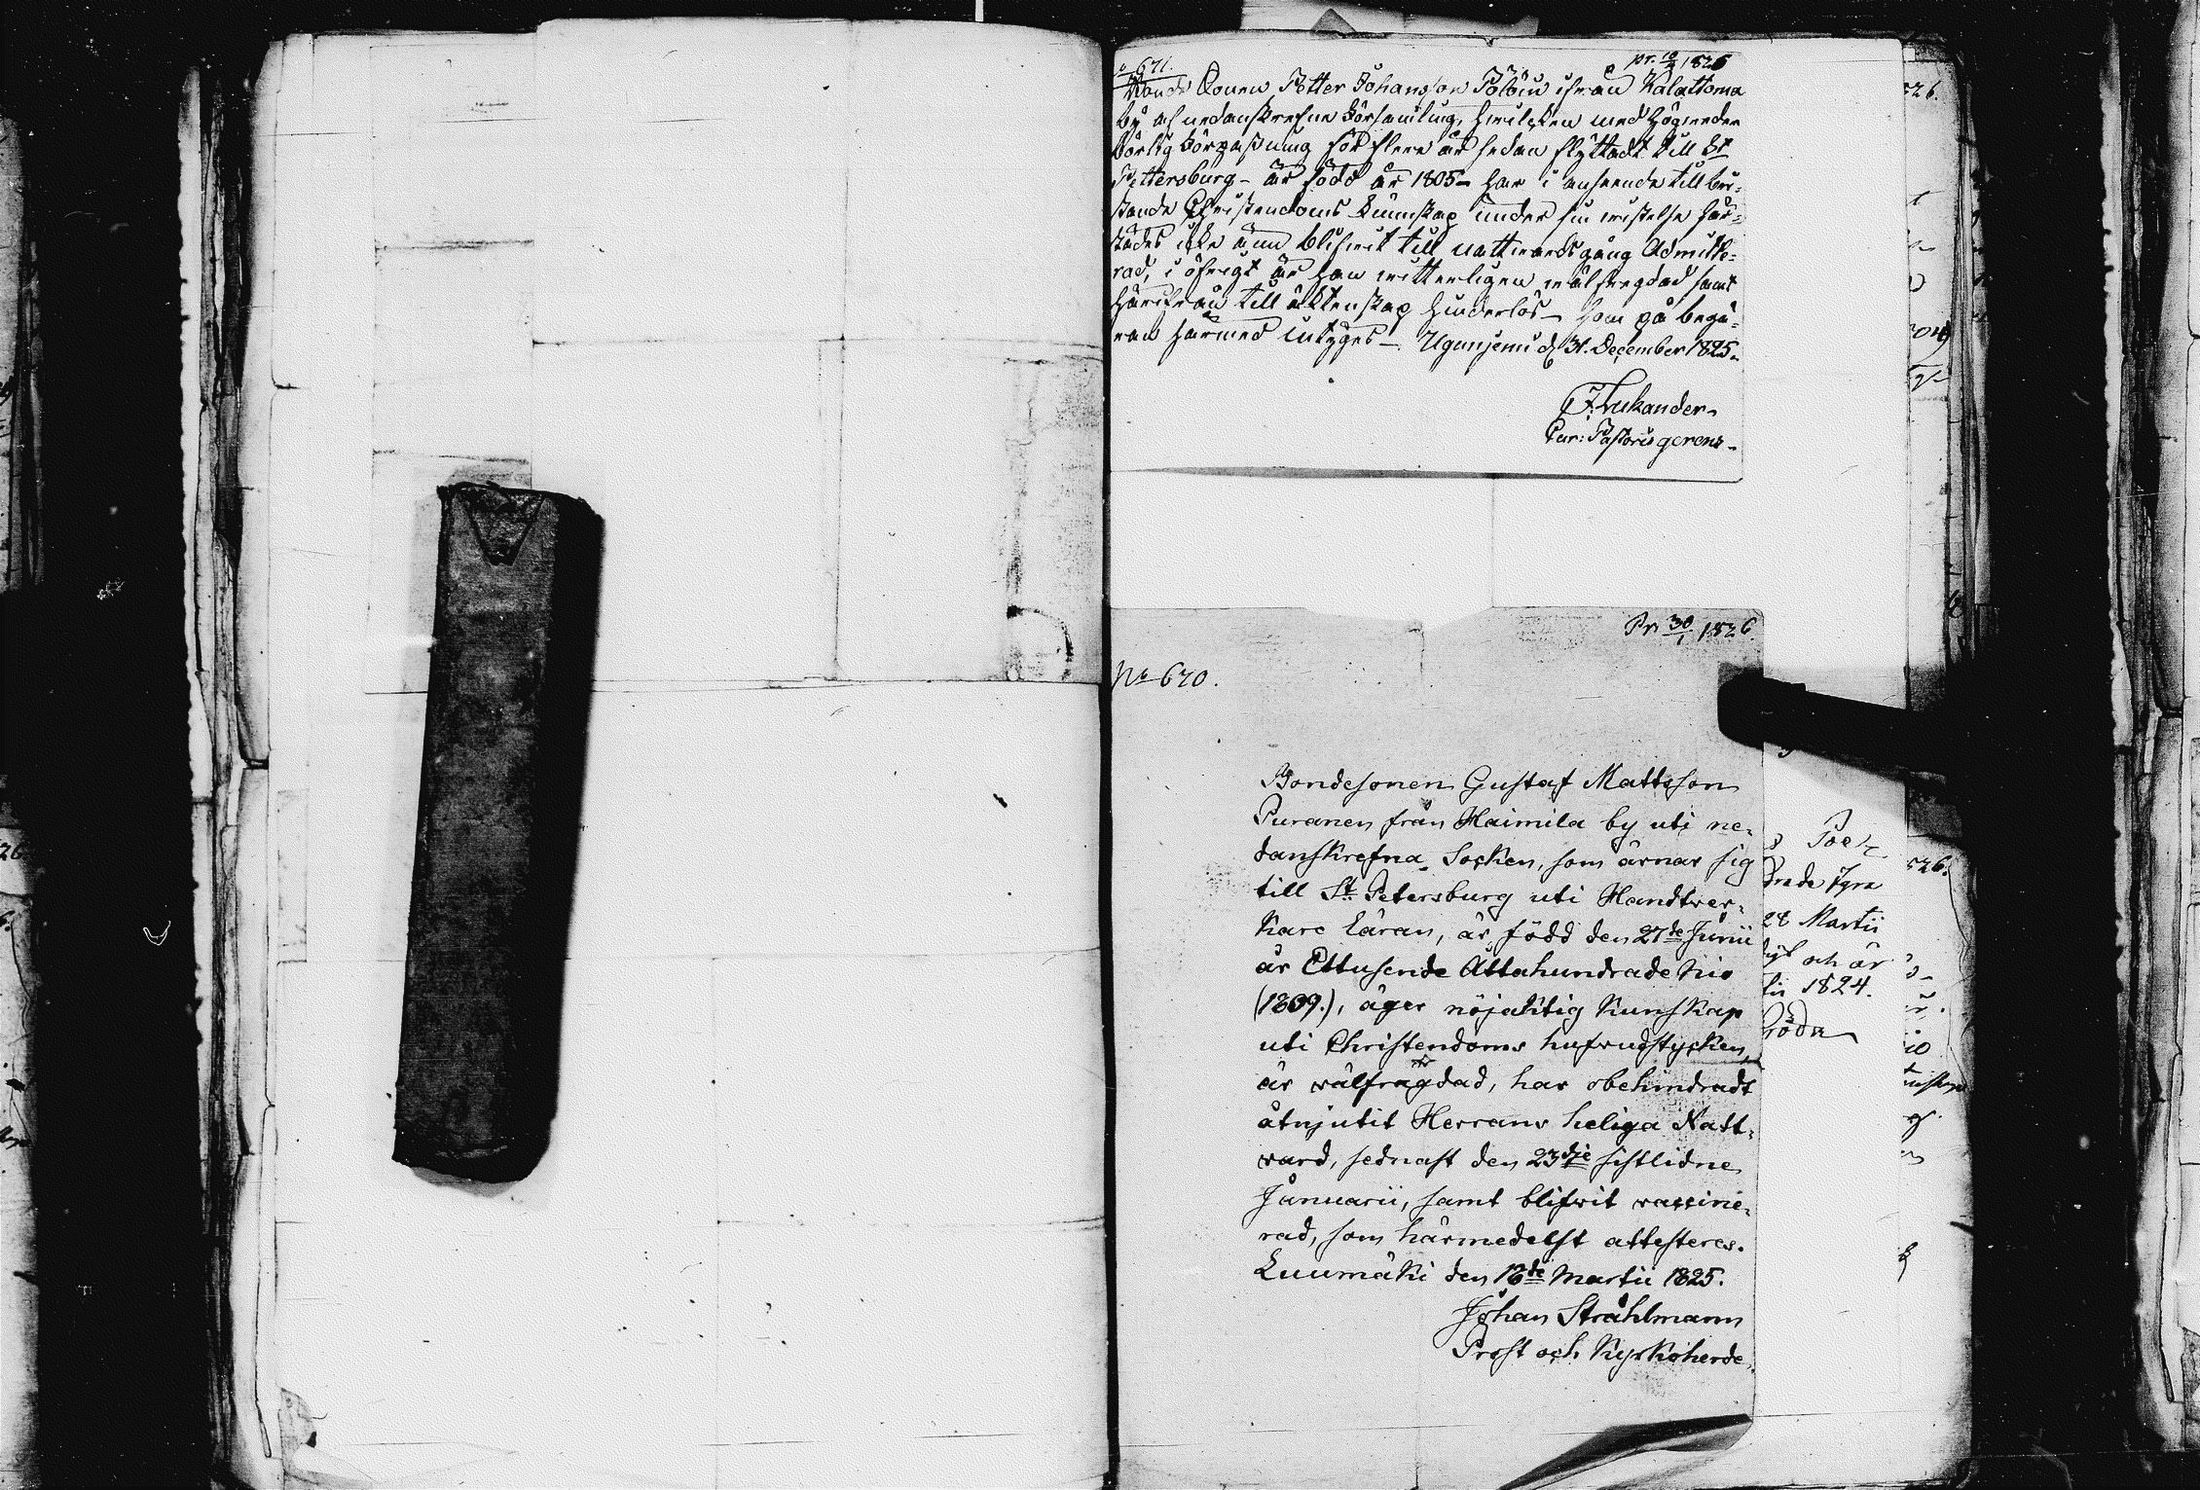 671.
pr. 10/2 1826
Bonde Sonen Petter Johansson Pöl ifrån Kalattoma
by af nedanskrefne Församling, hwilken med högwederbörlig
börlig Förpassning för flere år sedan flyttadt till St
Pettersburg – är född år 1805 – har i anseende till bri-
stande Christendoms kunskap under sin wistelse här-
städes icke ännu blifwit till nattwardsgång Admitte-
rad, i öfrigt är han witterligen wälfrägdad samt
härifrån till äktenskap hinderlös – som på begä-
ran härmed intygas – Uguniemi d. 31. December 1825.
F. Lukander
Cur: Pastoris gerens –
Pr 30/1 1826.
No 670.
Bondesonen Gustaf Mattsson
Puranen från Haimila by uti ne-
danskrefna Socken, som ärnar sig
till St. Petersburg uti Handtwer-
kare läran, är född den 27de Junii
år Ettusende Åttahundrade Nio
(1809.), äger nöjaktig kunskap
uti Christendoms hufwudstycken,
är wälfrägdad, har obehindradt
åtnjutit Herrans heliga Natt-
ward, sednast den 23dje sistlidne
Januarii, samt blifwit vaccine-
rad, som härmedelst attesteres.
Luumäki den 18de Martii 1825.
Johan Stråhlmann
Prost och Kyrkoherde.
28 Martii
och är
1824.